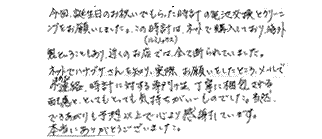 今回、誕生日のお祝いでもらった時計の電池交換とクリーニ
ングをお願いしました。この時計は、ネットで購入しており、海外
(ルミノックス)
製ということもあり、近くのお店では、全て断られていました。
ネットでハナブサさんを知り、実際、お願いをしたところ、メールで
の連絡、時計に対する専門は、丁寧に梱包される
面も感じ、とてもとっても気持ちがいいものでした。当然
できあがりも予想以上で心より感謝しています。
本当にありがとうございました。